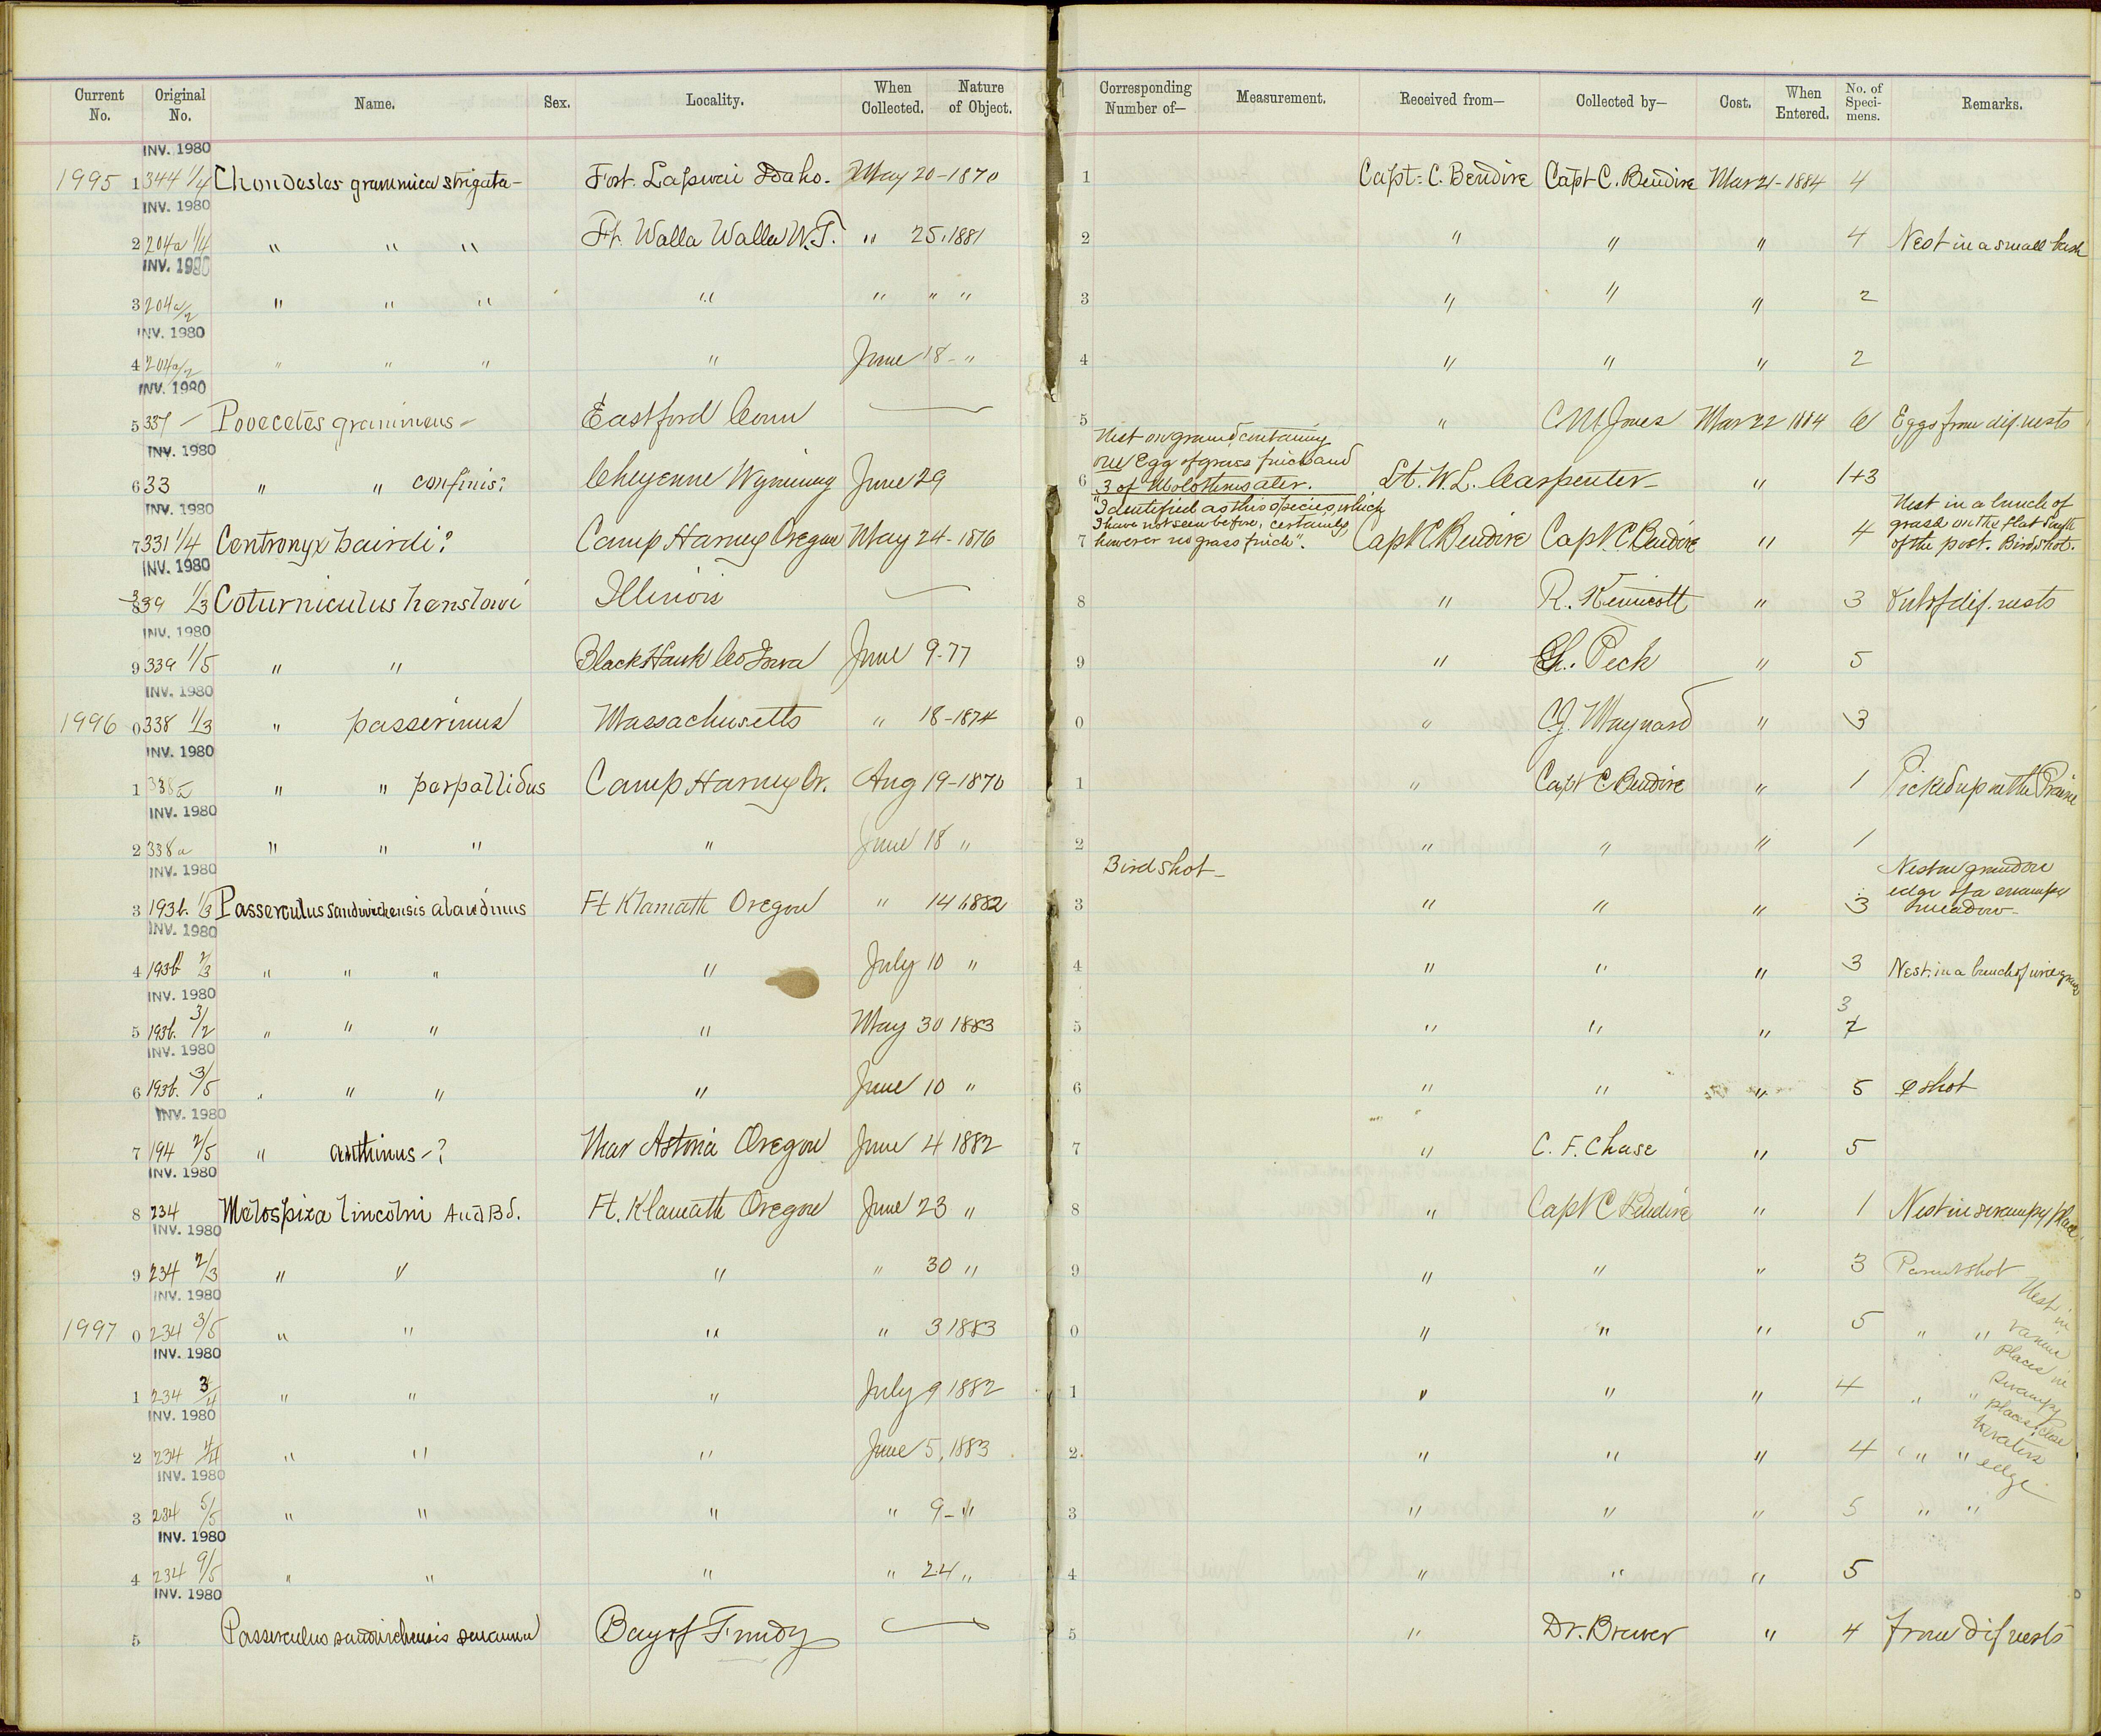 Current No. Original No. Name. Sex. Locality. When Collected. Nature of Object. Corresponding Number of— Measurement. Received from— Collected by— Cost. When Entered. No. of Speci-mens. Remarks.
INV. 1980
1995 1 344 1/4 Chondestes grammica strigata - Fort. Lapwai Idaho. May 20-1870 1 Capt. C. Bendire Capt C. Bendire Mar 21-1884 4
INV. 1980
2 204a 1/4 " " " Ft. Walla Walla W.T. " 25.1881 2 " " " 4 Nest in a small bush
INV. 1980
3 204a/2 " " " " " " " 3 " " " 2
INV. 1980
4 204a/2 " " " " June 18 - " 4 " " " 2
INV. 1980
5 337 - Poocetes gramineus - Eastford Conn 5 " C M Jones Mar 22 1884 6 Eggs from dif. nests
INV. 1980
Nest on ground containing
one Egg of grass finch and
3 of Molothrus ater.
6 33 " " confinis? Cheyenne Wyoming June 29 6 Lt. W. L. Carpenter - " 1+3
INV. 1980
"Identified as this species, which
I have not seen before, certainly
however no grass finch".
Nest in a bunch of
grass on the flat South
of the post. Bird shot.
7 331 1/4 Centronyx bairdi? Camp Harney Oregon May 24-1876 7 Capt C Bendire Capt. C. Bendire " 4
INV. 1980
8 339 1/3 Coturniculus henslowi Illinois 8 " R. Kennicott " 3 out of dif. nests
INV. 1980
9 339 1/5 " " Black Hawk Co Iowa June 9-77 9 " Peck " 5
INV. 1980
1996 0 338 1/3 " passerinus Massachusetts " 18-1874 0 " C.J. Maynard " 3
INV. 1980
1 338a " " perpallidus Camp Harney Or. Aug 19-1876 1 " Capt C Bendire " 1 Picked up on the Prairie
INV. 1980
2 338a " " " " June 18 " 2 " " " 1
INV. 1980
Bird shot -
Nest on ground on
edge of a swampy
meadow -
3 193b. 1/3 Passerculus sandwichensis alaudinus Ft Klamath Oregon " 14 1882 3 " " " 3
INV. 1980
4 193b 2/3 " " " " July 10 " 4 " " " 3 Nest in a bunch of wire grass
INV. 1980
5 193b. 3/2 " " " " May 30 1883 5 " " " 3
INV. 1980
6 193b. 3/5 " " " " June 10 " 6 " " " 5 ♀ shot
INV. 1980
7 194 2/5 " anthinus - ? Near Astoria Oregon June 4 1882 7 " C. F. Chase " 5
INV. 1980
8 234 Melospiza lincolni Aud Bd. Ft. Klamath Oregon June 23 " 8 " Capt C Bendire " 1 Nest in swampy place.
INV. 1980
9 234 2/3 " " " " 30 " 9 " " " 3 Parent shot
INV. 1980
1997 0 234 3/5 " " " " 3 1883 0 " " " 5 " "
INV. 1980
1 234 3/4 " " " July 9 1882 1 " " " 4 " "
INV. 1980
2 234 4/4 " " " June 5, 1883 2 " " " 4 " "
Nest in
places in
swampy
places, close
to waters
edge.
INV. 1980
3 234 5/5 " " " " 9 - " 3 " " " 5 " "
INV. 1980
4 234 9/5 " " " " 24 " 4 " " " 5
INV. 1980
5 Passerculus sandwichensis savanna Bay of Fundy 5 " Dr. Brewer " 4 from dif nests